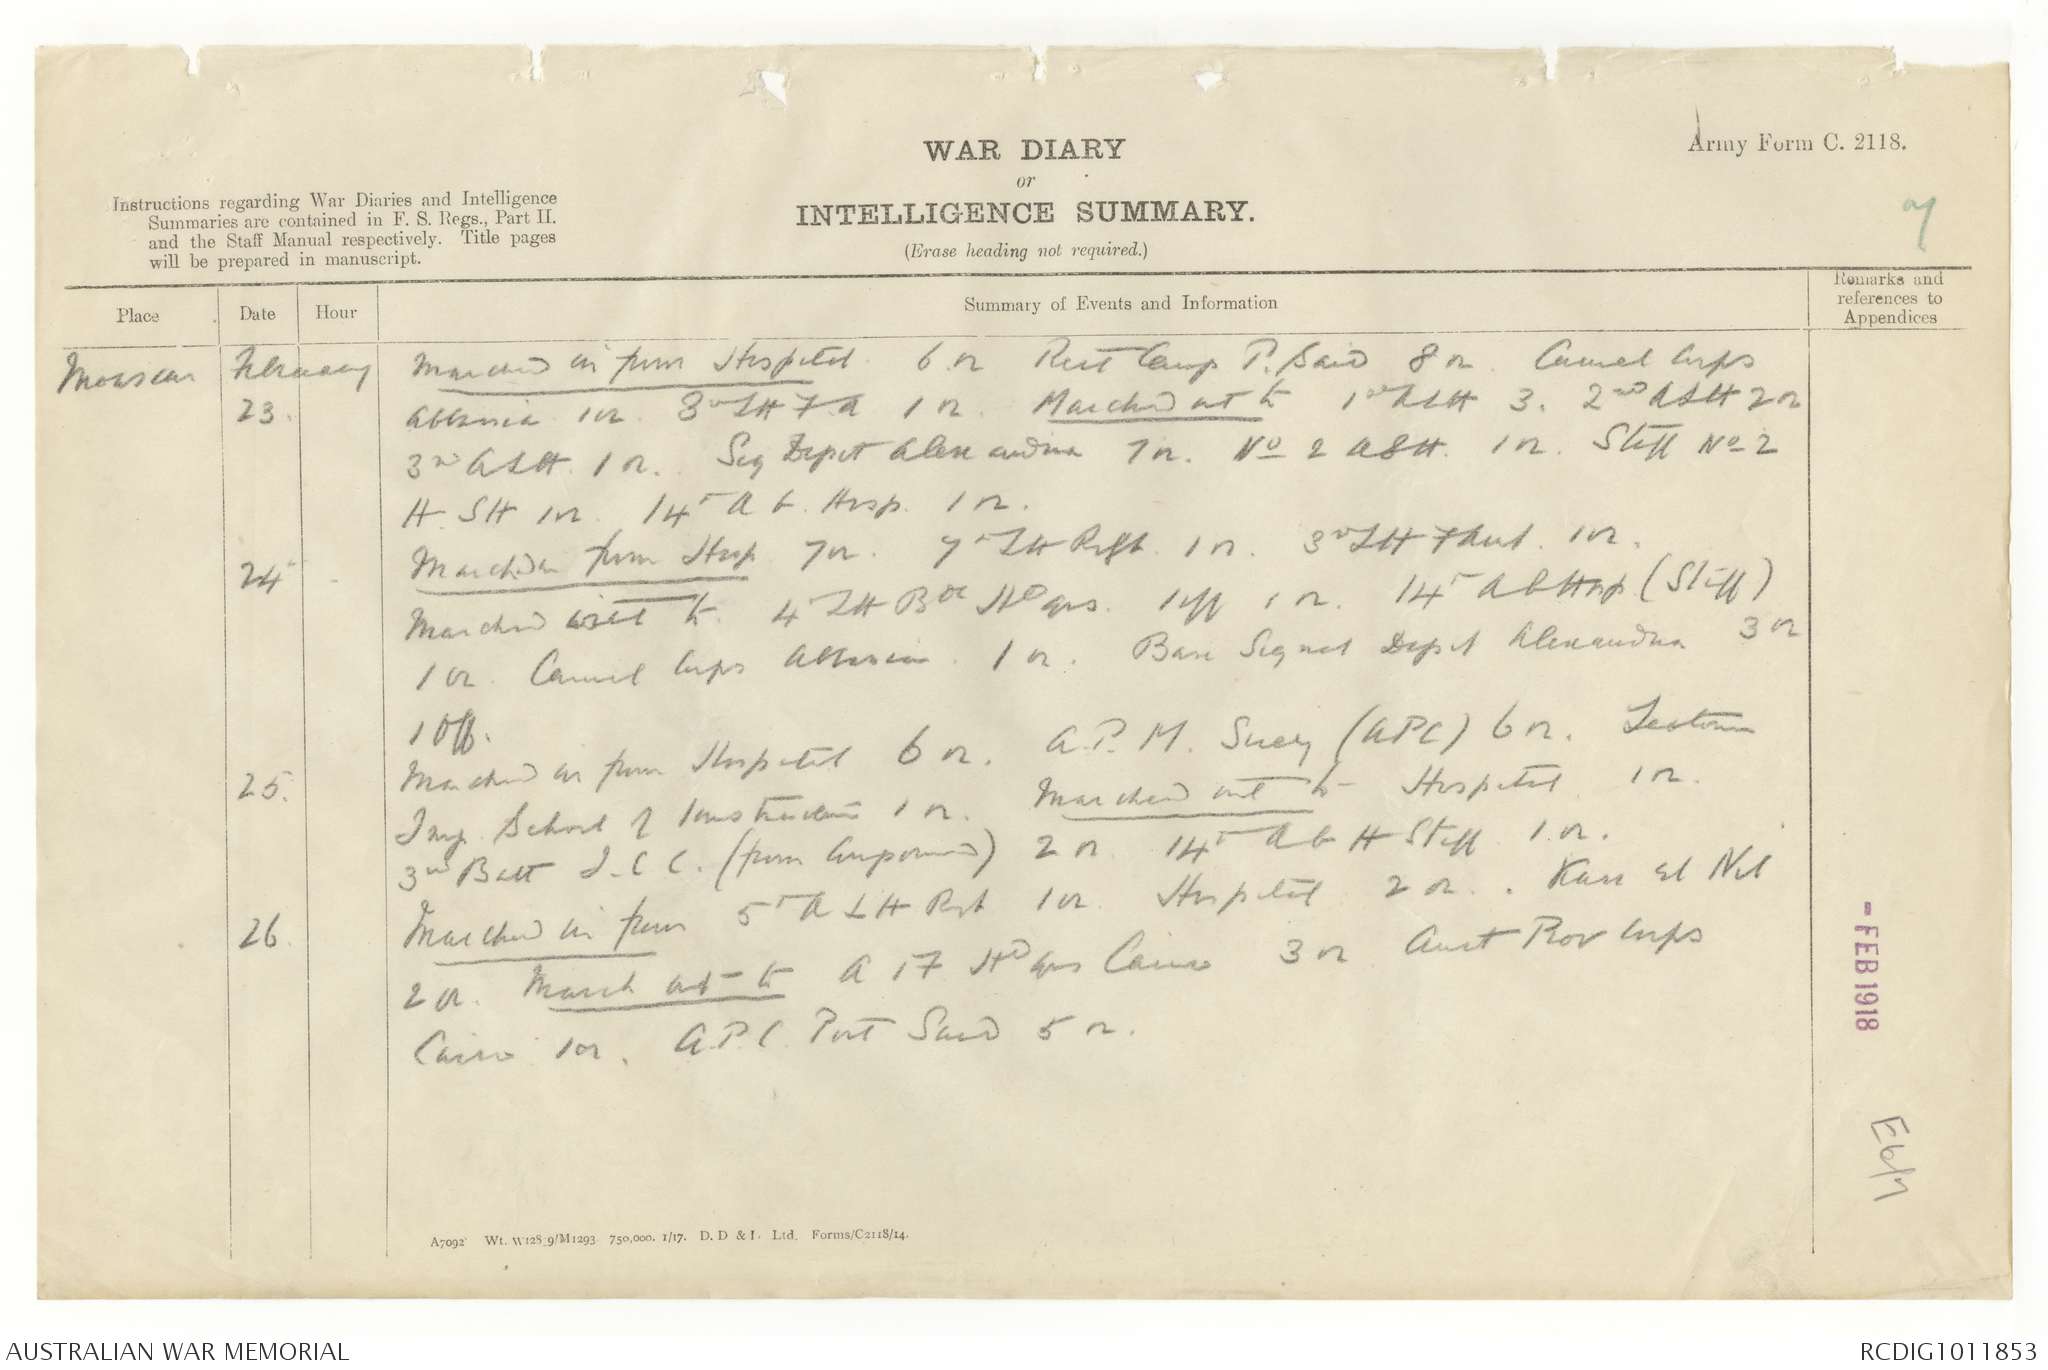 WAR DIARY
or
INTELLIGENCE SUMMARY.
(Erase heading not required.)
Army Form C. 2118.
Instructions regarding War Diaries and Intelligence
Summaries are contained in F. S. Regs., Part II.
and the Staff Manual respectively. Title pages
will be prepared in manuscript.
Place
Date
Hour
Summary of Events and Information
Remarks and
references to
Appendices
Moascar February Marched in from Hospital 6 or Rest Camp P. Said 8 or. Camel Corps
23. Abbassia 1 or. 3rd LH F A 1 or. Marched out to 1st ALH 3. 2nd ALH 2 or
3rd ALH. 1 or. Sig Depot Alexandria 7 or. No 2 ASH. 1 or. Staff No 2
H. SH 1 or. 14th A G. Hosp. 1 or.
24 Marched in from Hosp 7or. 7th LH Regt. 1 or. 3rd LH F Amb. 1 or.
Marched out to 4th LH Bde Hd qrs. 1 off 1 or. 14th A G Hosp (Staff)
1 or. Camel Corps Abbassia. 1 or. Base Signal Depot Alexandria 3 or
1 Off.
25. Marched in from Hospital 6 or. A.P.M. Suez (APC) 6 or. Zeitoun
Imp. School of Instruction 1 or. Marched out to Hospital 1 or.
3rd Batt I.C.C. (from Compound) 2 or 14th A G H Staff 1. or.
26. Marched in from 5th A LH Rgt 1 or. Hospital 2 or. Kasr El Nil
2 or. March out to A I F Hd qrs Cairo 3 or Aust Prov Corps
Cairo 1or. A.P.C. Port Said 5 or.
- FEB 1918
A7092 Wt. W128 9/M1293 750,000. 1/17. D. D & L. Ltd. Forms/C2118/14.
AUSTRALIAN WAR MEMORIAL
RCDIG1011853